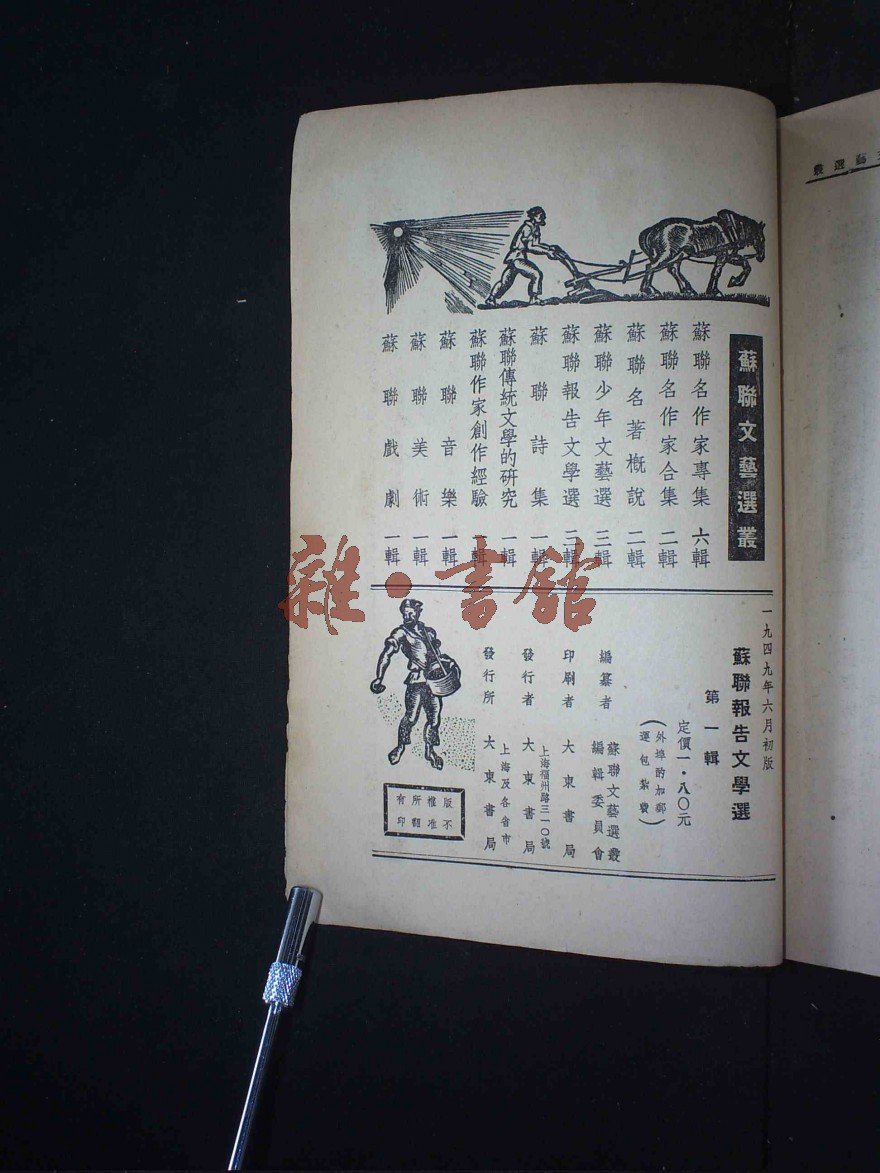 蘇聯文藝選叢
蘇聯名作家專集 六輯
蘇聯名作家合集 二輯
蘇聯名著概說 二輯
蘇聯少年文藝選 三輯
蘇聯報告文學選 三輯
蘇聯詩集 一輯
蘇聯傳統文學的研究 一輯
蘇聯作家創作經驗 一輯
蘇聯音樂 一輯
蘇聯美術 一輯
蘇聯戲劇 一輯
一九四九年六月初版
蘇聯報告文學選
第一輯
定價一·八〇元
(外埠酌加郵
運包紮費)
編纂者 蘇聯文藝選叢
編輯委員會
印刷者 大東書局
上海福州路三一〇號
發行者 大東書局
上海及各省市
發行所 大東書局
版權所有
不准翻印
雜·書館
藝選叢